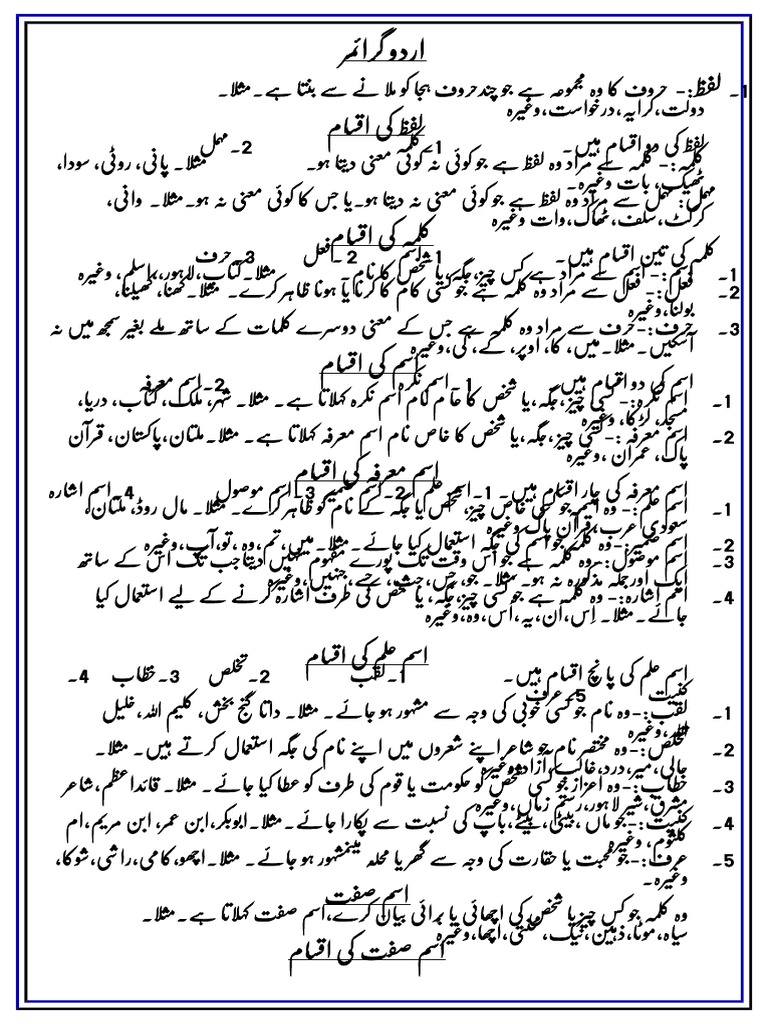 اردو گرائمر
1۔ لفظ:- حروف کا وہ مجموعہ ہے جو چند حروف ہجا کو ملا نے سے بنتا ہے۔مثلا۔
دولت،کرایہ،درخواست،وغیرہ
لفظ کی اقسام
لفظ کی دو اقسام ہیں۔ 1۔کلمہ 2۔مہمل
کلمہ:- کلمہ سے مراد وہ لفظ ہے جو کوئی نہ کوئی معنی دیتا ہو۔ مثلا۔ پانی، روٹی، سودا،
ٹھیک، بات وغیرہ۔
مہمل: مہمل سے مراد وہ لفظ ہے جو کوئی معنی نہ دیتا ہو۔یا جس کا کوئی معنی نہ ہو۔مثلا۔ وانی،
کرکٹ،سلف،ٹھاک،وات وغیرہ
کلمہ کی اقسام
کلمہ کی تین اقسام ہیں۔ 1۔اسم 2۔فعل 3۔حرف
1۔ اسم:- اسم سے مراد ہے کس چیز،جگہ،یا شخص کا نام۔ مثلا۔کتاب،لاہور،اسلم، وغیرہ
2۔ فعل:- فعل سے مراد وہ کلمہ ہے جو کسی کام کا کرنا یا ہونا ظاہر کرے۔ مثلا۔کھنا، کھیلنا،
بولنا،وغیرہ
3۔ حرف:-حرف سے مراد وہ کلمہ ہے جس کے معنی دوسرے کلمات کے ساتھ ملے بغیر سمجھ میں نہ
آسکیں۔مثلا۔میں، کا، اوپر، کے، کی،وغیرہ
اسم کی اقسام
اسم کی دو اقسام ہیں۔ 1۔اسم نکرہ 2۔اسم معرفہ
1۔ اسم نکرہ:- کسی چیز،جگہ،یا شخص کا عام نام اسم نکرہ کہلاتا ہے۔ مثلا۔ شہر، ملک، کتاب، دریا،
مسجد،لڑکا، وغیرہ
2۔ اسم معرفہ:- کسی چیز،جگہ،یا شخص کا خاص نام اسم معرفہ کہلاتا ہے۔ مثلا۔ملتان،پاکستان، قرآن
پاک، عمران ،وغیرہ
اسم معرفہ کی اقسام
اسم معرفہ کی چار اقسام ہیں۔ 1۔اسم علم 2۔اسم ضمیر 3۔اسم موصول 4۔اسم اشارہ
1۔ اسم علم:- وہ اسم جو کسی خاص چیز، شخص یا جگہ کے نام کو ظاہر کراے۔ مثلا۔ مال روڈ، ملتان،
سعودی عرب،قرآن پاک وغیرہ
2۔ اسم ضمیر:-وہ کلمہ جو اسم کی جگہ استعمال کیا جائے۔مثلا۔میں،تم،وہ ،تو،آپ،وغیرہ
3۔ اسم موصول:-وہ کلمہ ہے جو اس وقت تک پورے مفہوم نہیں دیتا جب تک اس کے ساتھ
ایک اور جملہ مذکورہ نہ ہو۔ مثلا۔ جو، جس، جنہیں،وغیرہ
4۔ اسم اشارہ:- وہ کلمہ ہے جو کسی چیز،جگہ، یا شخص کی طرف اشارہ کرنے کے لیے استعمال کیا
جائے۔مثلا۔ اِس،اُن،یہ،اُس،وہ،وغیرہ
اسم علم کی اقسام
اسم علم کی پانچ اقسام ہیں۔ 1۔لقب 2۔تخلص 3۔خطاب 4۔
کنیت 5۔عرف
1۔ لقب:-وہ نام جو کسی خوبی کی وجہ سے مشہور ہو جائے۔ مثلا۔ داتا گنج بخش، کلیم اللہ،خلیل
اللہ،وغیرہ
2۔ تخلص:-وہ مختصر نام جو شاعر اپنے شعروں میں اپنے نام کی جگہ استعمال کرتے ہیں۔ مثلا۔
حالی،میر،درد،غالب،آزاد،وغیرہ
3۔ خطاب:-وہ اعزاز جو کسی شخص کو حکومت یا قوم کی طرف کو عطا کیا جائے۔ مثلا۔ قائداعظم،شاعر
مشرق،شیر لاہور،رستم زماں،وغیرہ
4۔ کنیت:-جو ماں ،بیٹی، بیٹے،باپ کی نسبت سے پکارا جائے۔مثلا۔ابوبکر،ابن عمر، ابن مریم،ام
کلثوم، وغیرہ
5۔ عرف:-جو محبت یا حقارت کی وجہ سے گھر یا محلہ میںمشہور ہو جائے۔ مثلا۔اچھو،کامی،راشی،شوکا،
وغیرہ۔
اسم صفت
وہ کلمہ جو کس چیز یا شخص کی اچھائی یا برائی بیان کرے،اسم صفت کہلاتا ہے۔مثلا۔
سیاہ،موٹا،ذہین،نیک،محنتی،اچھا،وغیرہ
اسم صفت کی اقسام